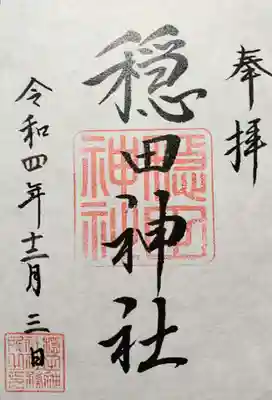 奉拝
穏田神社
令和四年十二月三日
穏田
神社